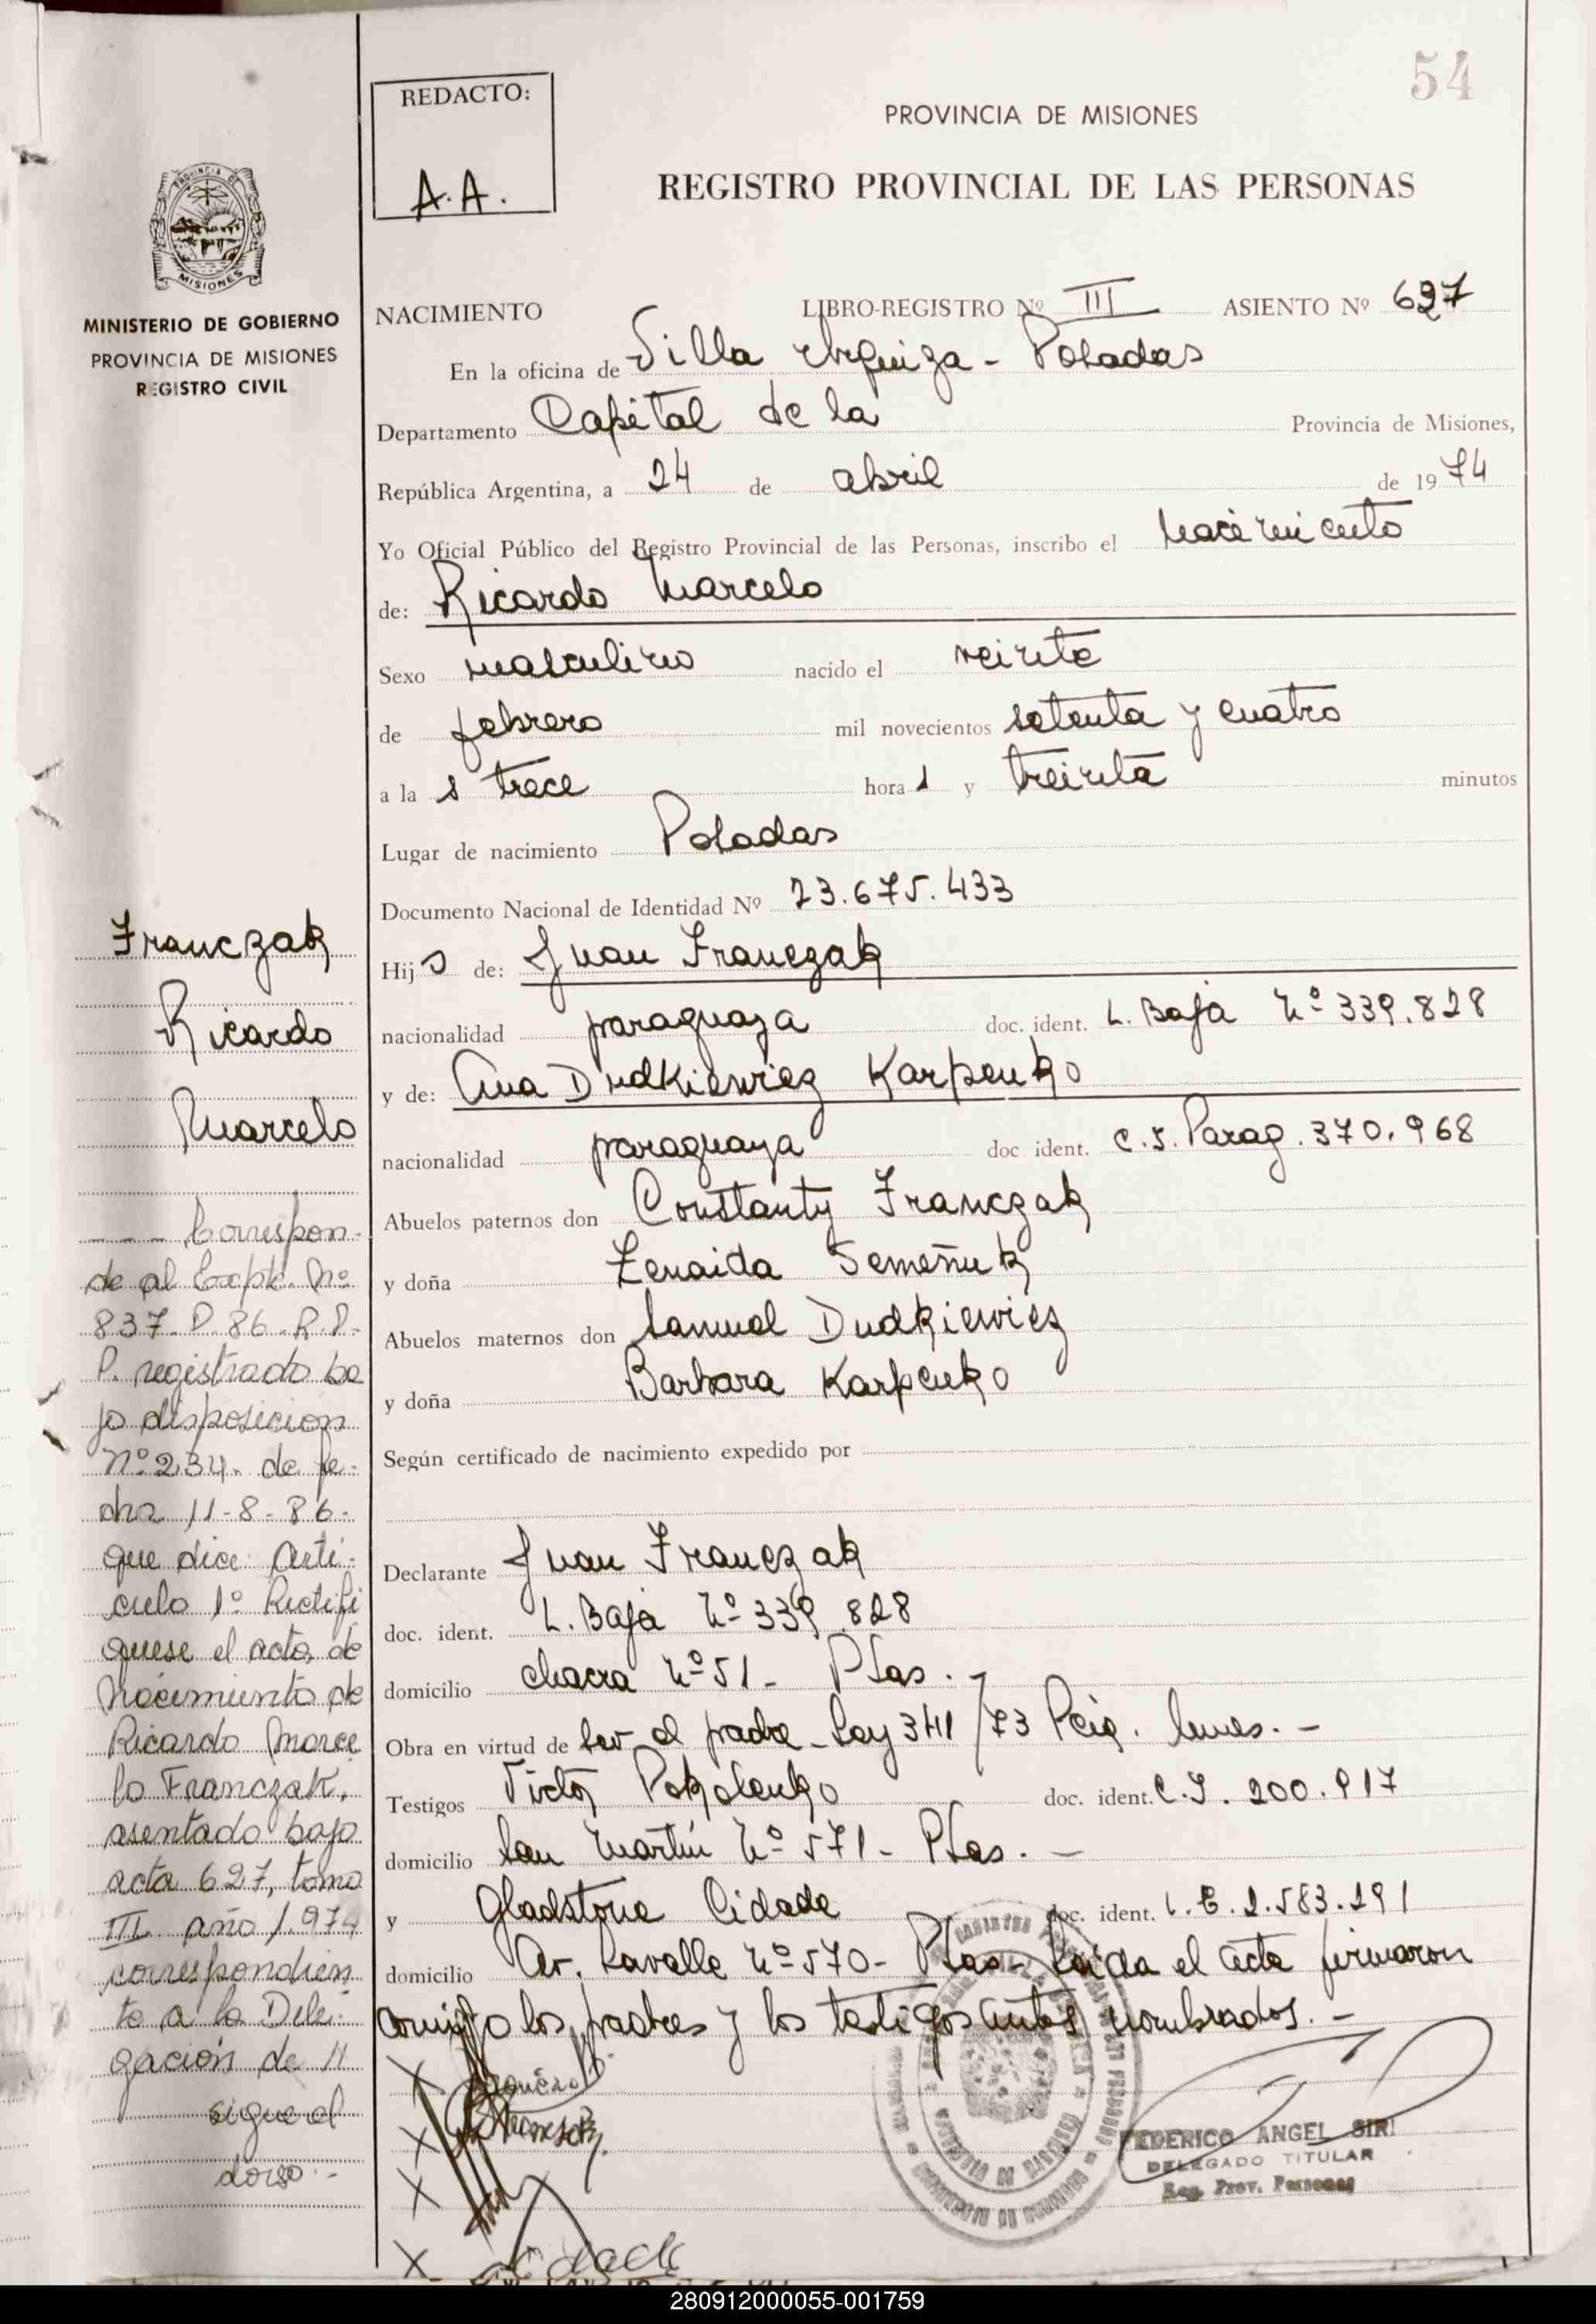 54
REDACTO:
A.A.
PROVINCIA DE MISIONES
REGISTRO PROVINCIAL DE LAS PERSONAS
PROVINCIA DE
MISIONES
MINISTERIO DE GOBIERNO
PROVINCIA DE MISIONES
REGISTRO CIVIL
NACIMIENTO LIBRO-REGISTRO Nº III ASIENTO Nº 627
En la oficina de Villa Urquiza - Posadas
Departamento Capital de la Provincia de Misiones,
República Argentina, a 24 de abril de 1974
Yo Oficial Público del Registro Provincial de las Personas, inscribo el nacimiento
de: Ricardo Marcelo
Sexo masculino nacido el veinte
de febrero mil novecientos setenta y cuatro
a la s trece hora s y treinta minutos
Lugar de nacimiento Posadas
Documento Nacional de Identidad Nº 23.675.433
Hijo de: Juan Franczak
nacionalidad paraguaya doc. ident. L. Baja Nº 339.828
y de: Ana Dudkiewicz Karpenko
nacionalidad paraguaya doc ident. C.I. Parag. 370.968
Abuelos paternos don Constanty Franczak
y doña Zenaida Semeñuk
Abuelos maternos don Samuel Dudkiewicz
y doña Barbara Karpenko
Según certificado de nacimiento expedido por
Declarante Juan Franczak
doc. ident. L. Baja Nº 339.828
domicilio chacra Nº 51 - Pdas. -
Obra en virtud de ser el padre - Ley 341/73
Testigos Victor doc. ident. C.I. 200.917
domicilio San Martín Nº 571 - Pdas. -
y Gladstone Cidade doc. ident. L.E. 1.583.191
domicilio Av. Lavalle Nº 570 - Pdas - Leída el acta firmaron
conmigo los padres y los testigos antes nombrados. -
Franczak
Ricardo
Marcelo
--- Correspon-
de al Expte. Nº
837-P-86-R.P.
P. registrado ba
jo disposición
Nº 234 - de fe-
cha 11-8-86-
que dice: Arti-
culo 1º Rectifi
quese el acta de
Nacimiento de
Ricardo Marce
lo Franczak,
asentado bajo
acta 627, tomo
III año 1.974
correspondien
te a la Dele-
gación de //
sigue al
dorso.-
X
X
X
X
FEDERICO ANGEL SIRI
DELEGADO TITULAR
Reg. Prov. Personas
280912000055-001759